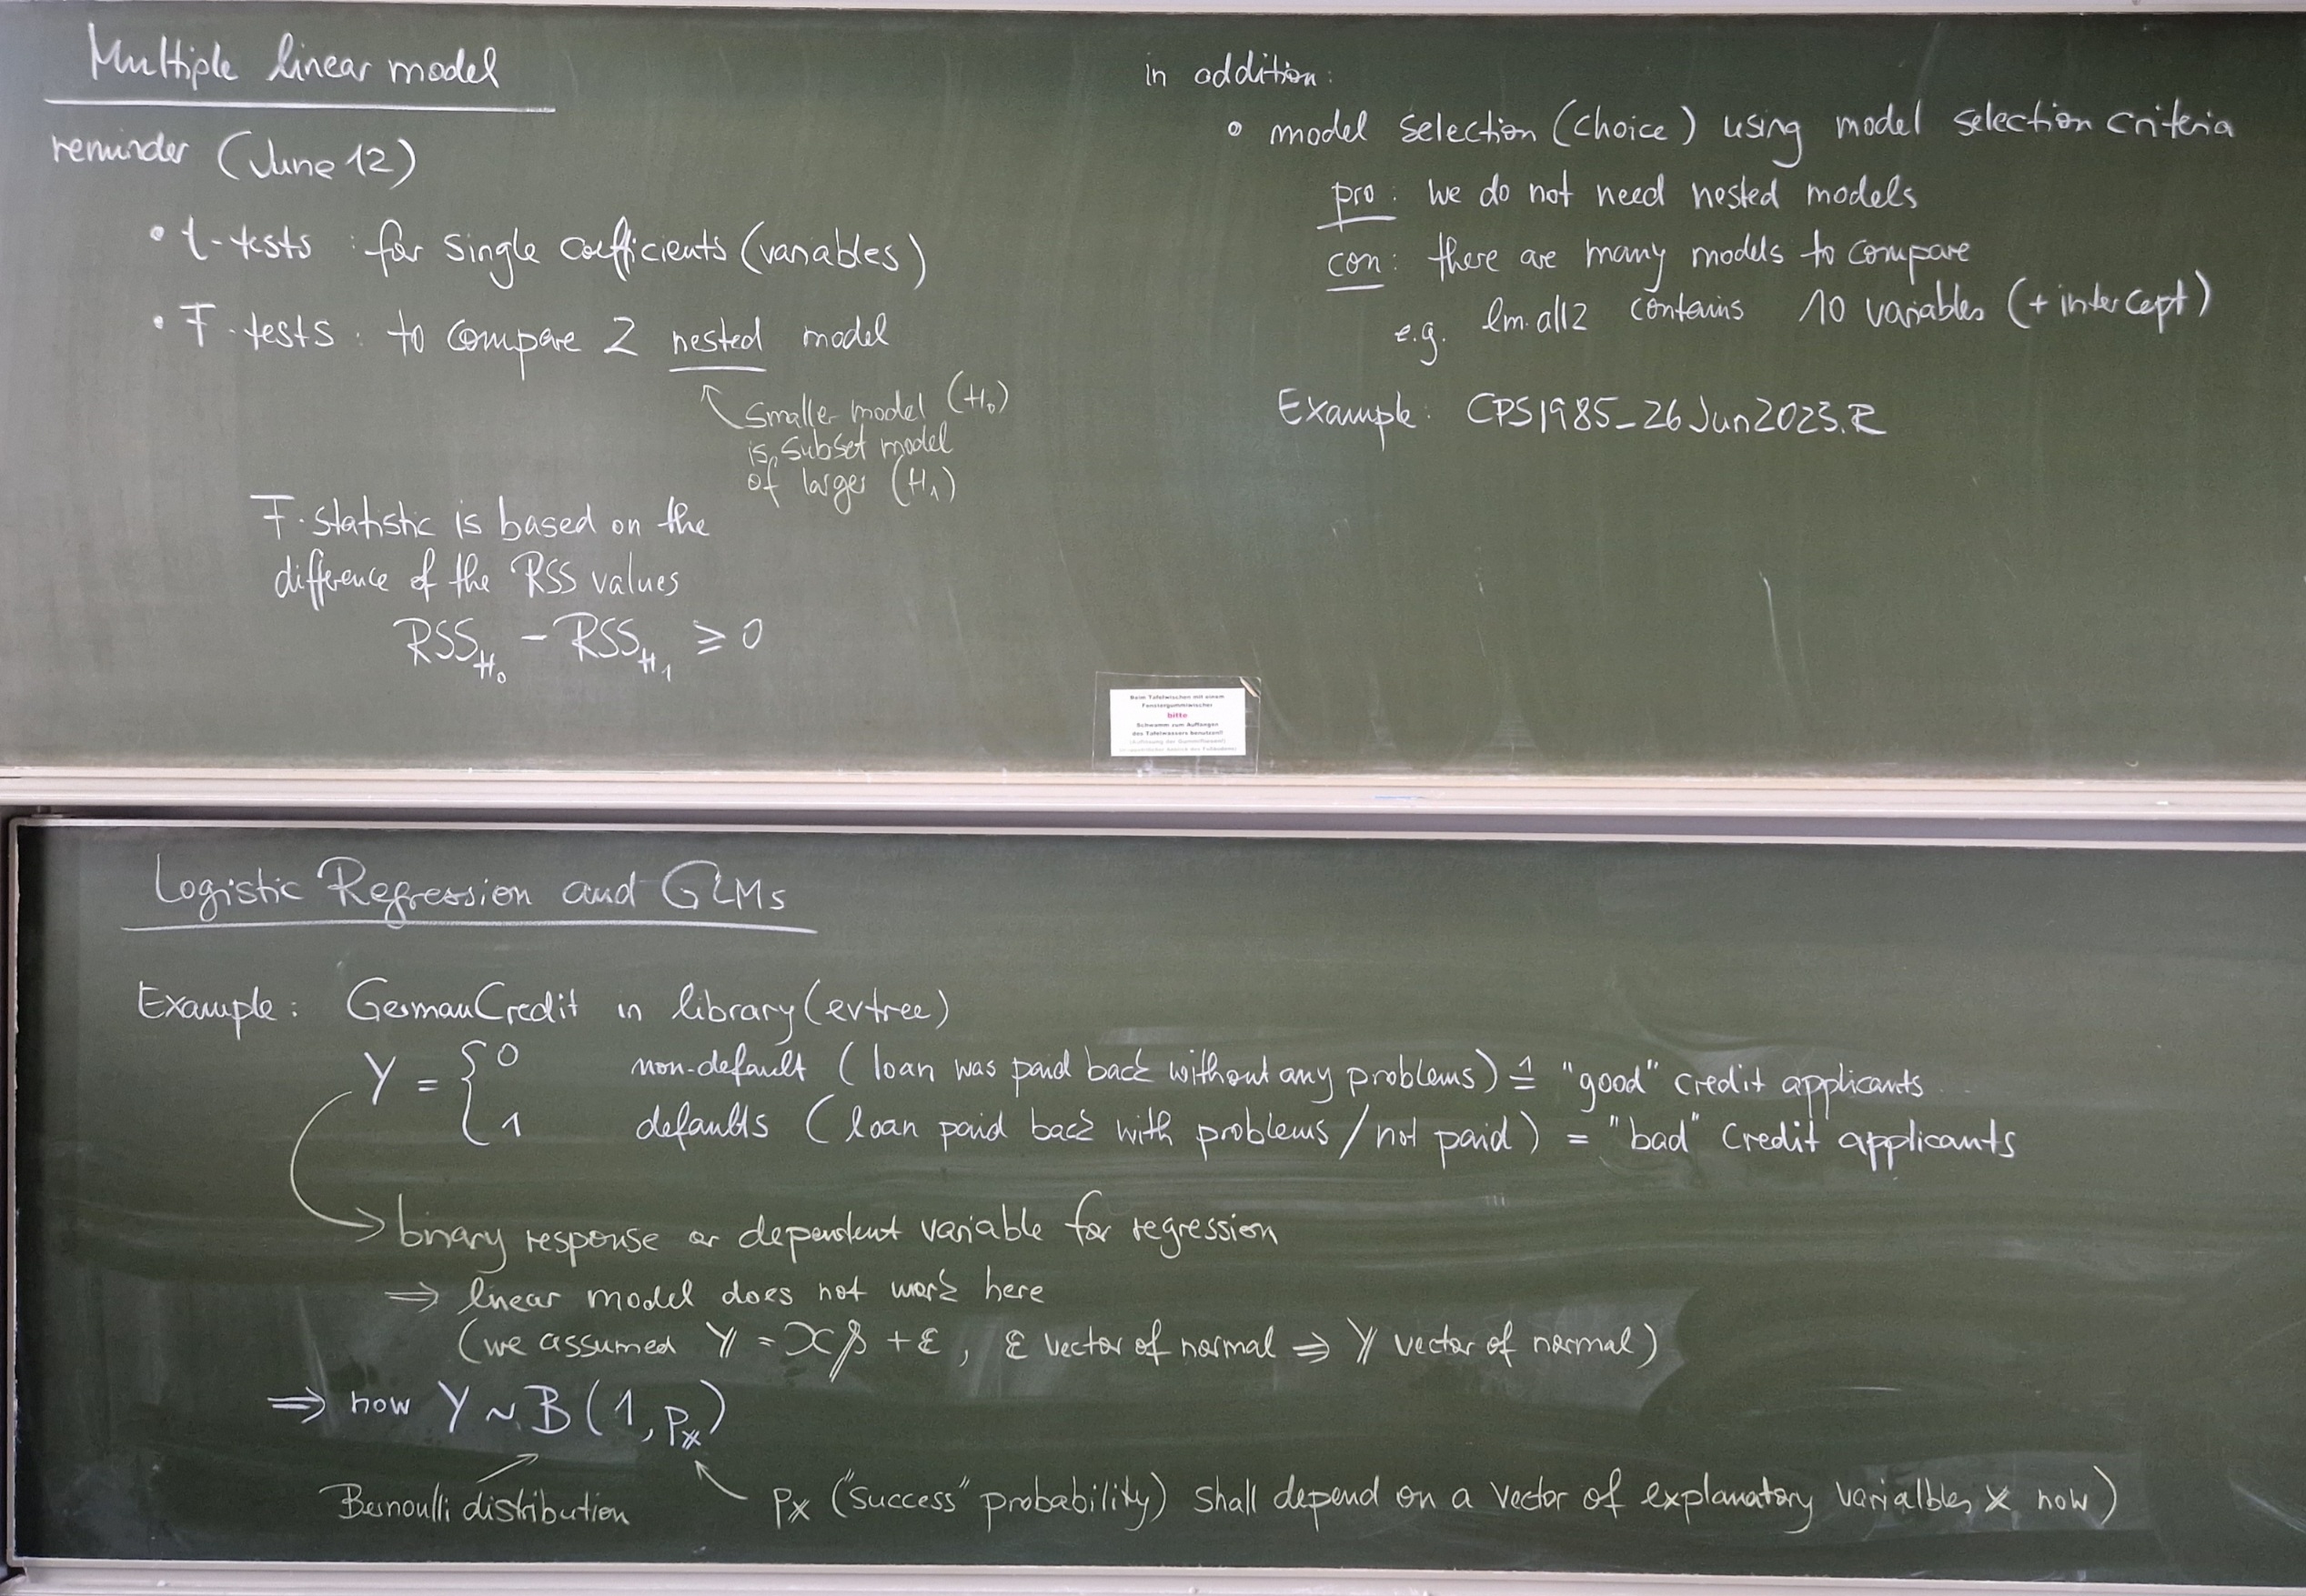 Multiple linear model
reminder (June 12)
• t-tests : for single coefficients (variables)
• F-tests : to compare 2 nested model
smaller model (H₀)
is subset model
of larger (H₁)
F-statistic is based on the
difference of the RSS values
RSS_H₀ - RSS_H₁ ≥ 0
in addition:
• model selection (choice) using model selection criteria
pro: we do not need nested models
con: there are many models to compare
e.g. lm.all2 contains 10 variables (+ intercept)
Example: CPS1985_26Jun2023.R
Beim Tafelwischen mit einem
Fenstergummiwischer
bitte
Schwamm zum Auffangen
des Tafelwassers benutzen!!
Logistic Regression and GLMs
Example: GermanCredit in library(evtree)
Y = { 0 non-default (loan was paid back without any problems) ≙ "good" credit applicants
1 defaults (loan paid back with problems / not paid) = "bad" credit applicants
→ binary response or dependent variable for regression
⇒ linear model does not work here
(we assumed Y = Xβ + ε, ε vector of normal ⇒ Y vector of normal)
⇒ now Y ~ B(1, pₓ)
Bernoulli distribution
pₓ ("success" probability) shall depend on a vector of explanatory varialbles x now)